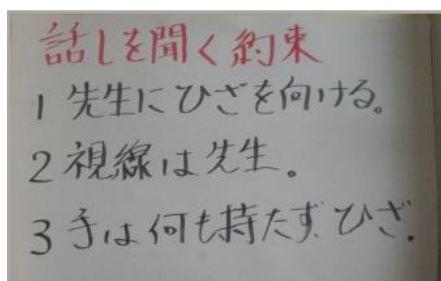 話しを聞く約束
1 先生にひざを向ける。
2 視線は先生。
3 手は何も持たず、ひざ。